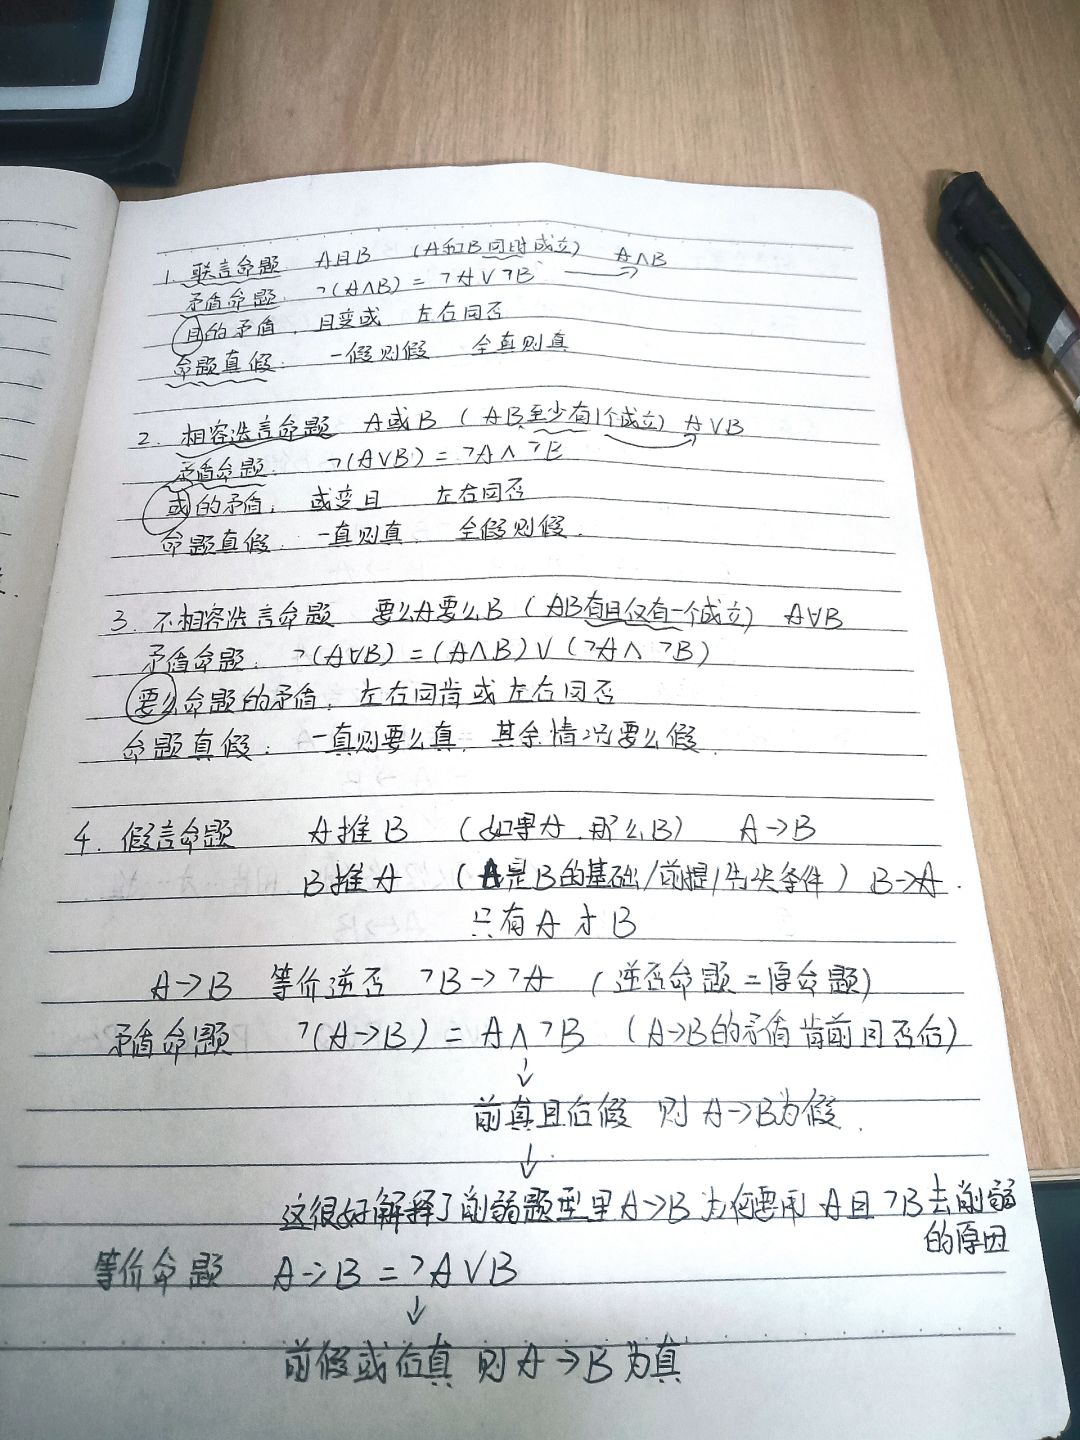 1. 联言命题 A且B (A和B同时成立) A∧B
矛盾命题: ¬(A∧B) = ¬A∨¬B
且的矛盾, 且变或 左右同否
命题真假: 一假则假 全真则真
2. 相容选言命题 A或B (AB至少有1个成立) A∨B
矛盾命题: ¬(A∨B) = ¬A∧¬B
或的矛盾; 或变且 左右同否
命题真假. 一真则真. 全假则假.
3. 不相容选言命题 要么A要么B (AB有且仅有一个成立) A∀B
矛盾命题: ¬(A∀B) = (A∧B)∨(¬A∧¬B)
要么命题的矛盾, 左右同肯或左右同否
命题真假: 一真则要么真. 其余情况要么假.
4. 假言命题 A推B (如果A.那么B) A→B
B推A (A是B的基础/前提/先决条件) B→A.
只有A才B
A→B 等价逆否 ¬B→¬A (逆否命题=原命题)
矛盾命题 ¬(A→B) = A∧¬B (A→B的矛盾 肯前同否后)
↓
前真且后假 则A→B为假.
↓
这很好解释了削弱题型里A→B 为何要用 A且¬B去削弱
的原因
等价命题 A→B = ¬A∨B
↓
前假或后真 则A→B为真